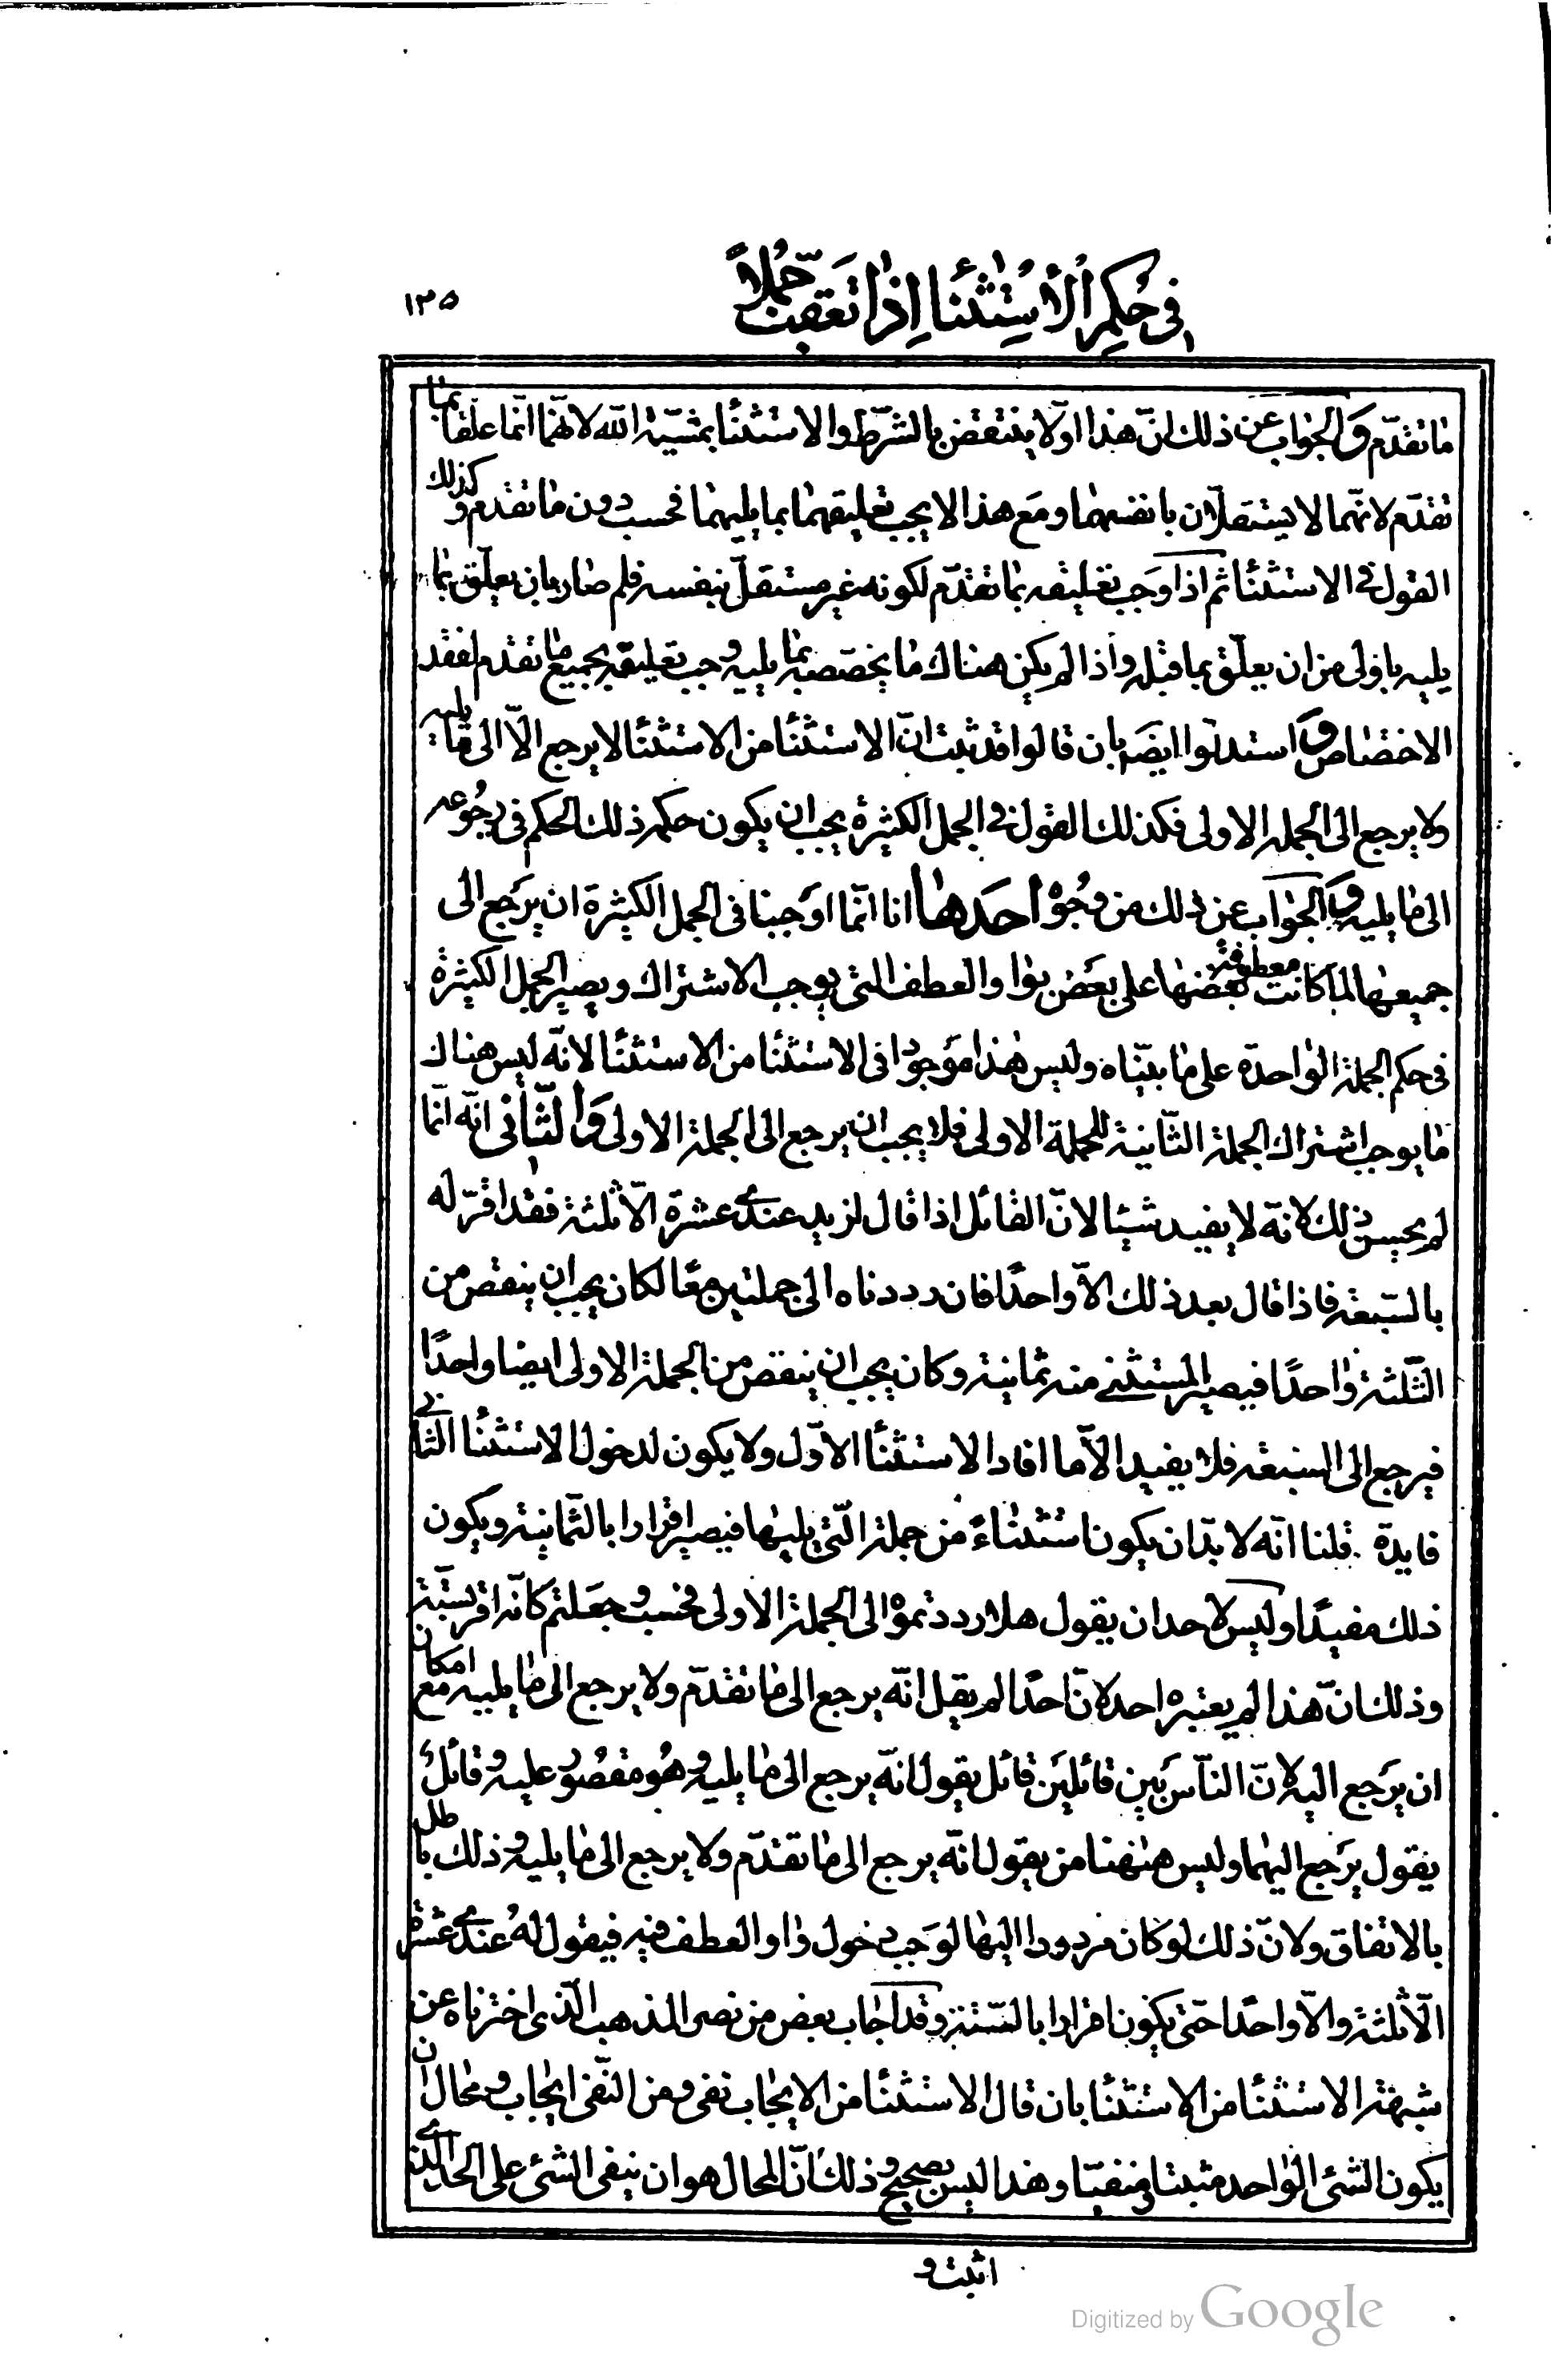 في حكم الاستثنا اذا تعقب جملا
١٣٥
ما تقدم والجواب عن ذلك انّ هذا اوّلا ينتقض بالشّرط والاستثنا بمشيّة اللّه لانّهما انّما علّقا بما
تقدّم لانّهما لا يستقلّان بانفسهما ومع هذا لا يجب تعليقهما بما يليهما فحسب دون ما تقدم وكذلك
القول في الاستثنا ثم اذا وجب تعليقه بما تقدّم لكونه غير مستقلّ بنفسه فلم صار بان يعلّق بما
يليه باولى من ان يعلّق بما قبله واذا لم يكن هناك ما يخصّصه بما يليه وجب تعليقه بجميع ما تقدم لفقد
الاختصاص واستدلّوا ايضا بان قالوا قد ثبت انّ الاستثنا من الاستثنا لا يرجع الّا الى ما يليه
ولا يرجع الى الجملة الاولى فكذلك القول في الجمل الكثيرة يجب ان يكون حكمه ذلك الحكم في رجوعه
الى ما يليه والجواب عن ذلك من وجوه احدها انا انّما اوجبنا في الجمل الكثيرة ان يرجع الى
جميعها لما كانت معطوفة بعضها على بعض بواو العطف التي يوجب الاشتراك ويصير الجمل الكثيرة
في حكم الجملة الواحدة على ما بيّناه وليس هذا موجودا في الاستثنا من الاستثنا لانّه ليس هناك
ما يوجب اشتراك الجملة الثّانية للجملة الاولى فلا يجب ان يرجع الى الجملة الاولى والثّاني انّه انّما
لم يحسن ذلك لانّه لا يفيد شيئا لانّ القائل اذا قال لزيد عندي عشرة الّا ثلثة فقد اقرّ له
بالسّبعة فاذا قال بعد ذلك الّا واحدًا فان رددناه الى جملتين معًا لكان يجب ان ينقص من
الثّلثة واحدًا فيصير المستثنى منه ثمانية وكان يجب ان ينقص من الجملة الاولى ايضا واحدًا
فيرجع الى السبعة فلا يفيد الّا ما افاد الاستثنا الاوّل ولا يكون لدخول الاستثنا الثاني
فايدة قلنا انّه لا بدّ ان يكون استثناءً من جملة الّتي يليها فيصير اقرارا بالثّمانية ويكون
ذلك مفيدًا وليس لاحد ان يقول هلا رددتموه الى الجملة الاولى فحسب وجعلتم كانّه اقر بستّة
وذلك انّ هذا لم يعتبره احد لانّ احدًا لم يقل انّه يرجع الى ما تقدّم ولا يرجع الى ما يليه مع امكان
ان يرجع اليه لانّ النّاس بين قائلين قائل يقول انّه يرجع الى ما يليه وهو مقصور عليه وقائل
يقول يرجع اليهما وليس هٰهنا من يقول انّه يرجع الى ما تقدّم ولا يرجع الى ما يليه وذلك باطل
بالاتفاق ولانّ ذلك لو كان مردودا اليها لوجب دخول واو العطف فيه فيقول له عندي عشرة
الّا ثلثة والّا واحدًا حتى يكون اقرارا بالسّتة وقد اجاب بعض من نصر المذهب الّذي اخترناه عن
شبهة الاستثنا من الاستثنا بان قال الاستثنا من الايجاب نفي ومن النّفي ايجاب ومحال ان
يكون الشئ الواحد مثبتا ومنفيّا وهذا ليس بصحيح وذلك انّ المحال هو ان ينفى الشئ على الحد الذي
اثبت و
Digitized by Google